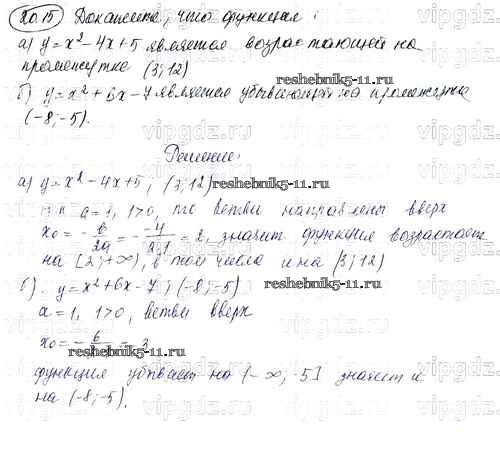 20.15) Докажите, что функция:
а) y = x² - 4x + 5 является возрастающей на
промежутке (3; 12) reshebnik5-11.ru
б) y = x² + 6x - 7 является убывающей на промежутке
(-8; -5).
Решение:
а) y = x² - 4x + 5, (3; 12) reshebnik5-11.ru
т.к a = 1, 1>0, то ветви направлены вверх
x₀ = -b/2a = - -4/2·1 = 2, значит функция возрастает
на [2; +∞), в том числе и на (3; 12)
б). y = x² + 6x - 7; (-8; -5)
a = 1, 1>0, ветви вверх
x₀ = - 6/ = -3
reshebnik5-11.ru
функция убывает на (-∞; -5] значит и
на (-8; -5).
vipgdz.ru vipgdz.ru vipgdz.ru